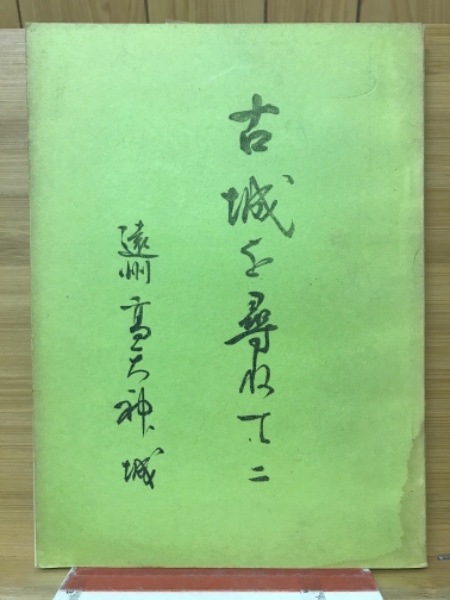 古城を尋ねて 二
遠州高天神城